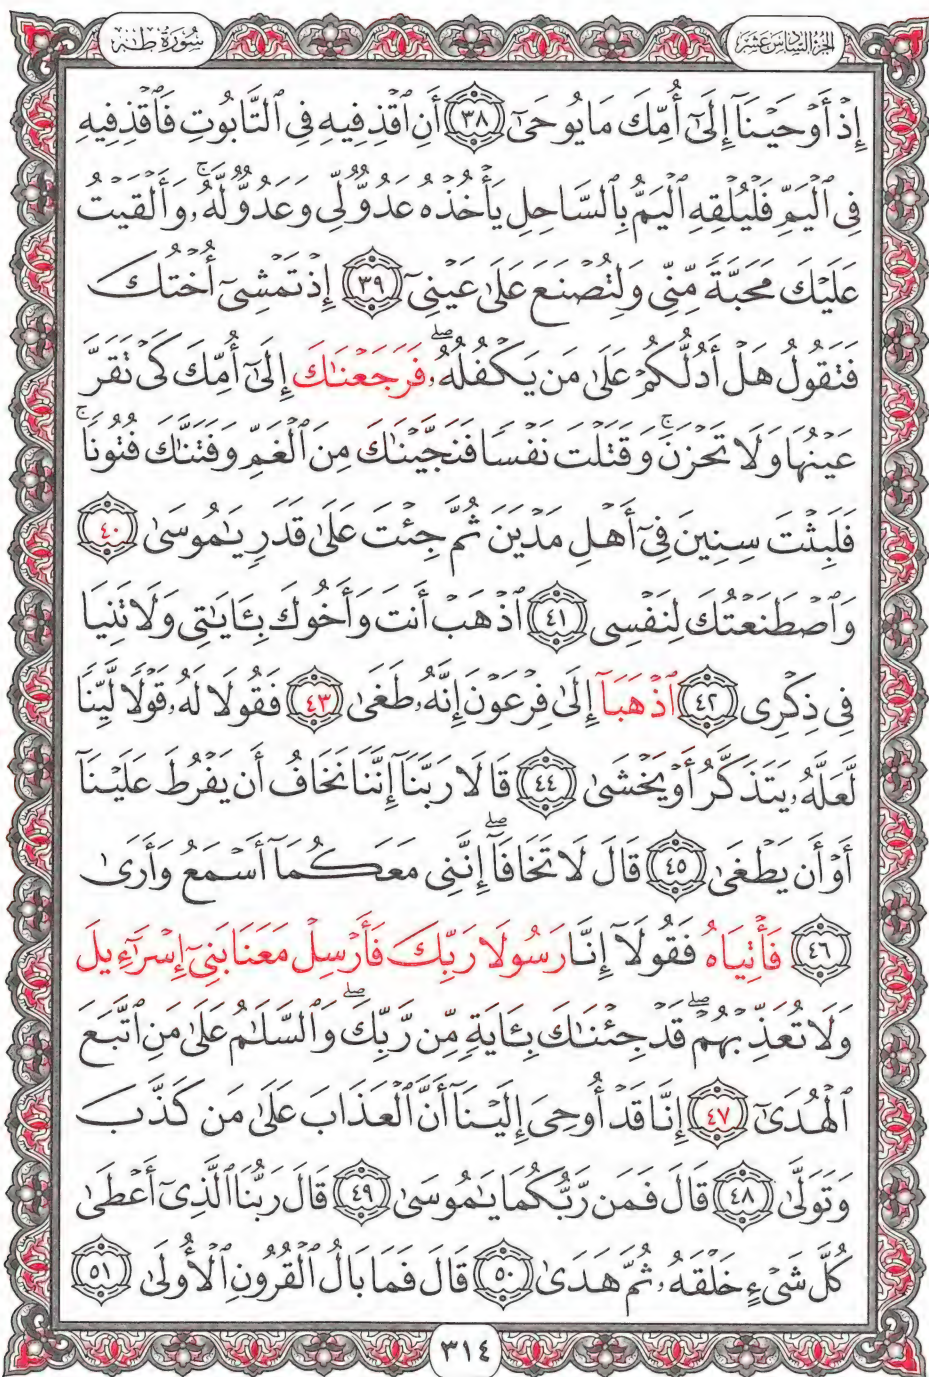 الجزء السادس عشر
سورة طه
إِذْ أَوْحَيْنَآ إِلَىٰٓ أُمِّكَ مَا يُوحَىٰٓ ٣٨ أَنِ ٱقْذِفِيهِ فِى ٱلتَّابُوتِ فَٱقْذِفِيهِ
فِى ٱلْيَمِّ فَلْيُلْقِهِ ٱلْيَمُّ بِٱلسَّاحِلِ يَأْخُذْهُ عَدُوٌّ لِّى وَعَدُوٌّ لَّهُۥۚ وَأَلْقَيْتُ
عَلَيْكَ مَحَبَّةً مِّنِّى وَلِتُصْنَعَ عَلَىٰ عَيْنِىٓ ٣٩ إِذْ تَمْشِىٓ أُخْتُكَ
فَتَقُولُ هَلْ أَدُلُّكُمْ عَلَىٰ مَن يَكْفُلُهُۥۖ فَرَجَعْنَٰكَ إِلَىٰٓ أُمِّكَ كَىْ تَقَرَّ
عَيْنُهَا وَلَا تَحْزَنَۚ وَقَتَلْتَ نَفْسًا فَنَجَّيْنَٰكَ مِنَ ٱلْغَمِّ وَفَتَنَّٰكَ فُتُونًاۚ
فَلَبِثْتَ سِنِينَ فِىٓ أَهْلِ مَدْيَنَ ثُمَّ جِئْتَ عَلَىٰ قَدَرٍ يَٰمُوسَىٰ ٤٠
وَٱصْطَنَعْتُكَ لِنَفْسِى ٤١ ٱذْهَبْ أَنتَ وَأَخُوكَ بِـَٔايَٰتِى وَلَا تَنِيَا
فِى ذِكْرِى ٤٢ ٱذْهَبَآ إِلَىٰ فِرْعَوْنَ إِنَّهُۥ طَغَىٰ ٤٣ فَقُولَا لَهُۥ قَوْلًا لَّيِّنًا
لَّعَلَّهُۥ يَتَذَكَّرُ أَوْ يَخْشَىٰ ٤٤ قَالَا رَبَّنَآ إِنَّنَا نَخَافُ أَن يَفْرُطَ عَلَيْنَآ
أَوْ أَن يَطْغَىٰ ٤٥ قَالَ لَا تَخَافَآۖ إِنَّنِى مَعَكُمَآ أَسْمَعُ وَأَرَىٰ
٤٦ فَأْتِيَاهُ فَقُولَآ إِنَّا رَسُولَا رَبِّكَ فَأَرْسِلْ مَعَنَا بَنِىٓ إِسْرَٰٓءِيلَ
وَلَا تُعَذِّبْهُمْۖ قَدْ جِئْنَٰكَ بِـَٔايَةٍ مِّن رَّبِّكَۖ وَٱلسَّلَٰمُ عَلَىٰ مَنِ ٱتَّبَعَ
ٱلْهُدَىٰٓ ٤٧ إِنَّا قَدْ أُوحِىَ إِلَيْنَآ أَنَّ ٱلْعَذَابَ عَلَىٰ مَن كَذَّبَ
وَتَوَلَّىٰ ٤٨ قَالَ فَمَن رَّبُّكُمَا يَٰمُوسَىٰ ٤٩ قَالَ رَبُّنَا ٱلَّذِىٓ أَعْطَىٰ
كُلَّ شَىْءٍ خَلْقَهُۥ ثُمَّ هَدَىٰ ٥٠ قَالَ فَمَا بَالُ ٱلْقُرُونِ ٱلْأُولَىٰ ٥١
٣١٤